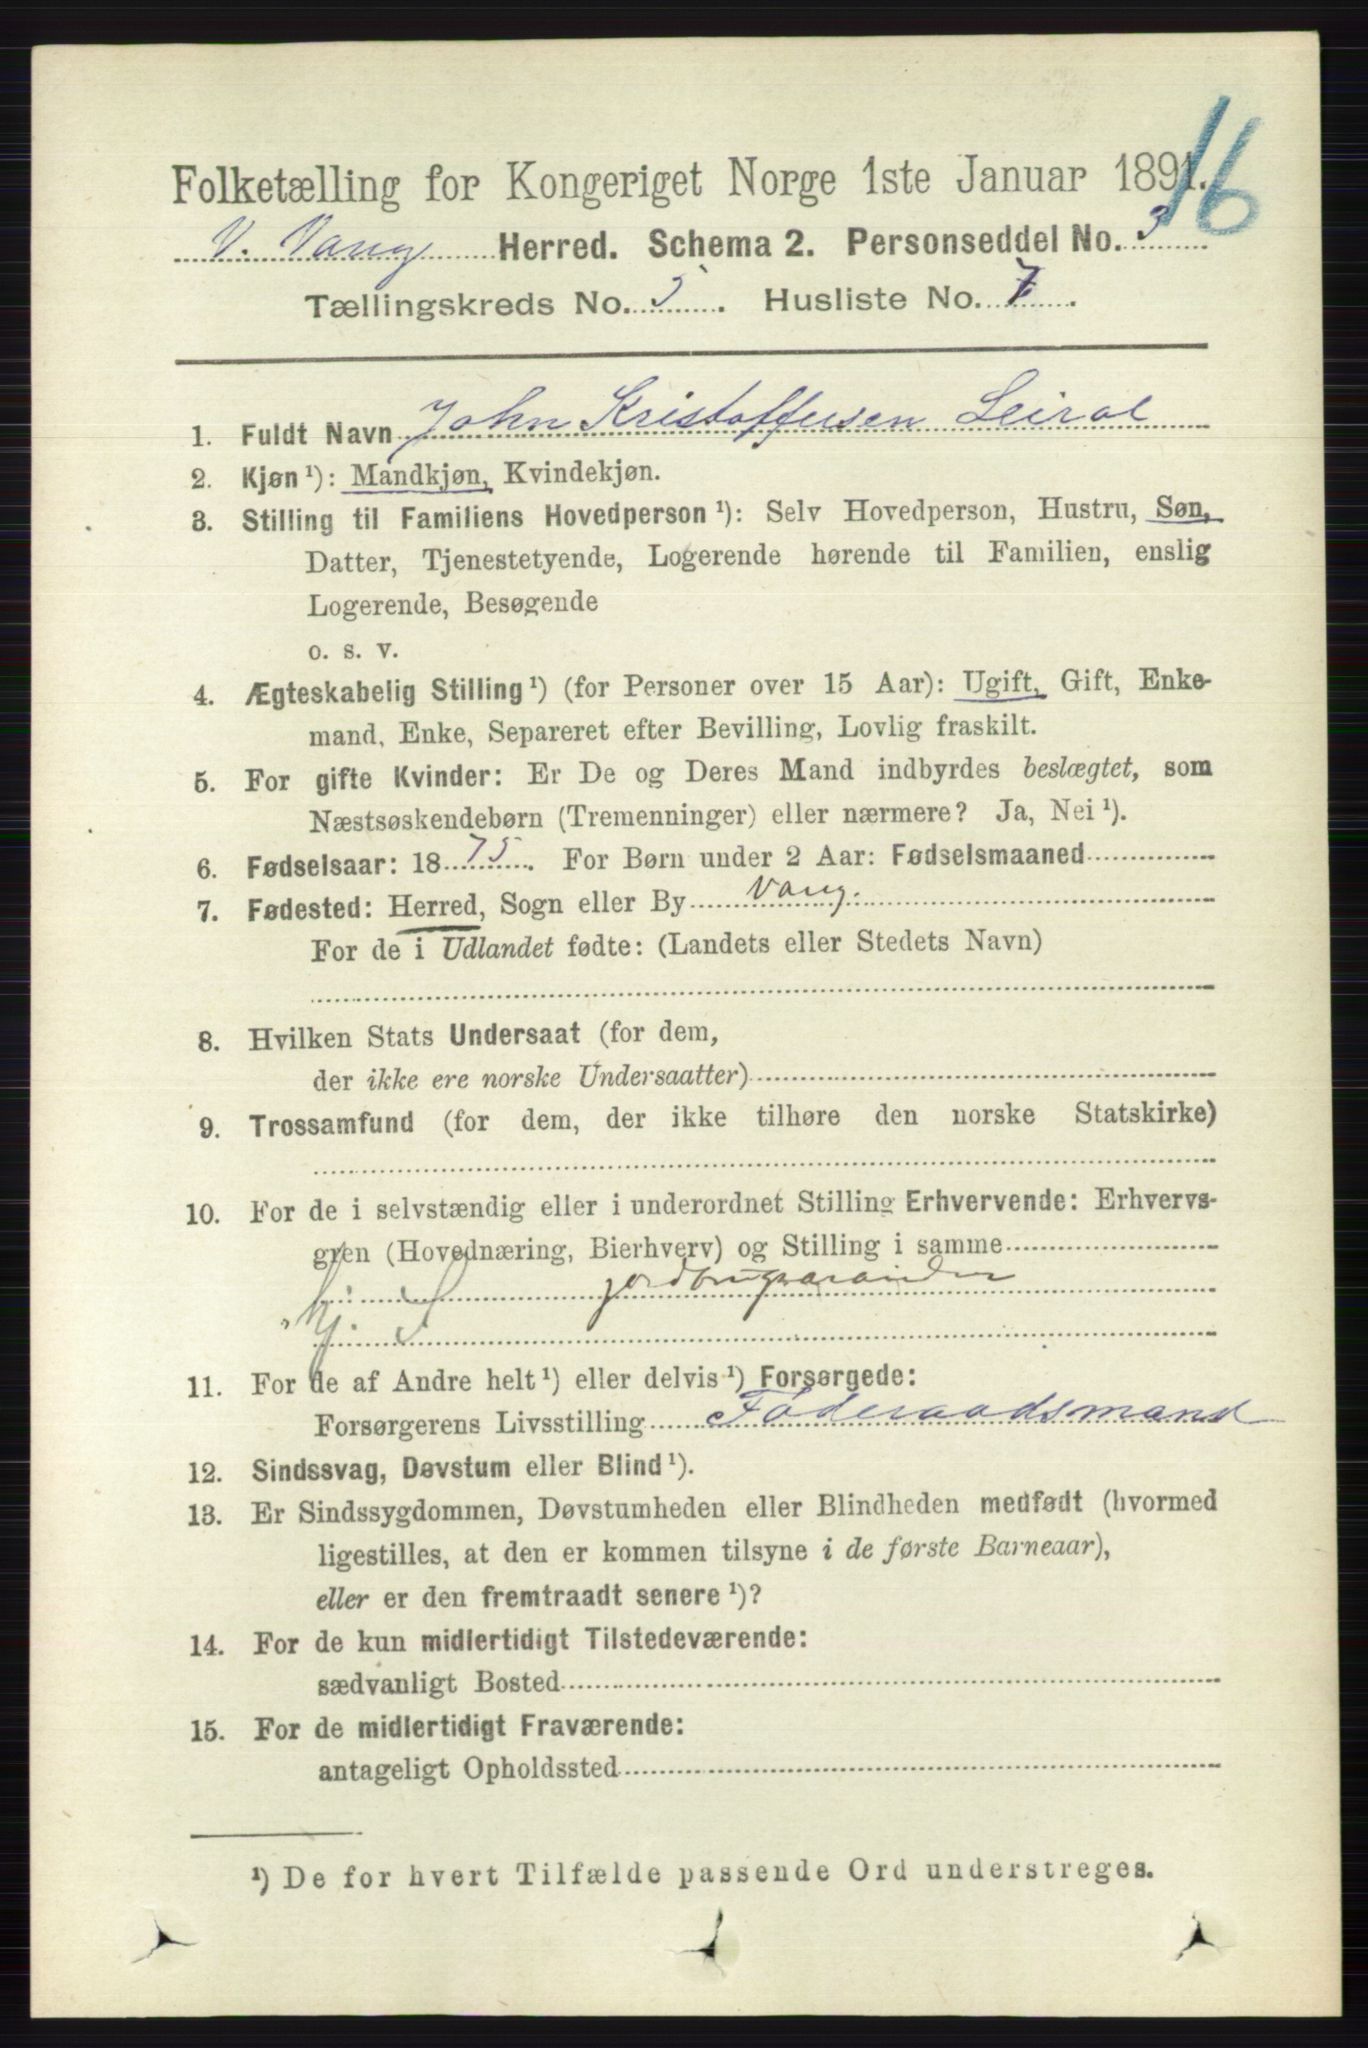 16
Folketælling for Kongeriget Norge 1ste Januar 1891.
V. Vang Herred. Schema 2. Personseddel No. 3
Tællingskreds No. 5. Husliste No. 7.
1. Fuldt Navn John Kristoffersen Leirol
2. Kjøn ¹): Mandkjøn, Kvindekjøn.
3. Stilling til Familiens Hovedperson ¹): Selv Hovedperson, Hustru, Søn,
Datter, Tjenestetyende, Logerende hørende til Familien, enslig
Logerende, Besøgende
o. s. v.
4. Ægteskabelig Stilling ¹) (for Personer over 15 Aar): Ugift, Gift, Enke-
mand, Enke, Separeret efter Bevilling, Lovlig fraskilt.
5. For gifte Kvinder: Er De og Deres Mand indbyrdes beslægtet, som
Næstsøskendebørn (Tremenninger) eller nærmere? Ja, Nei ¹).
6. Fødselsaar: 1875. For Børn under 2 Aar: Fødselsmaaned
7. Fødested: Herred, Sogn eller By Vang.
For de i Udlandet fødte: (Landets eller Stedets Navn)
8. Hvilken Stats Undersaat (for dem,
der ikke ere norske Undersaatter)
9. Trossamfund (for dem, der ikke tilhøre den norske Statskirke)
10. For de i selvstændig eller i underordnet Stilling Erhvervende: Erhvervs-
gren (Hovednæring, Bierhverv) og Stilling i samme
jordbrugsarbeider
11. For de af Andre helt ¹) eller delvis ¹) Forsørgede:
Forsørgerens Livsstilling Føderaadsmand
12. Sindssvag, Døvstum eller Blind ¹).
13. Er Sindssygdommen, Døvstumheden eller Blindheden medfødt (hvormed
ligestilles, at den er kommen tilsyne i de første Barneaar),
eller er den fremtraadt senere ¹)?
14. For de kun midlertidigt Tilstedeværende:
sædvanligt Bosted
15. For de midlertidigt Fraværende:
antageligt Opholdssted
¹) De for hvert Tilfælde passende Ord understreges.